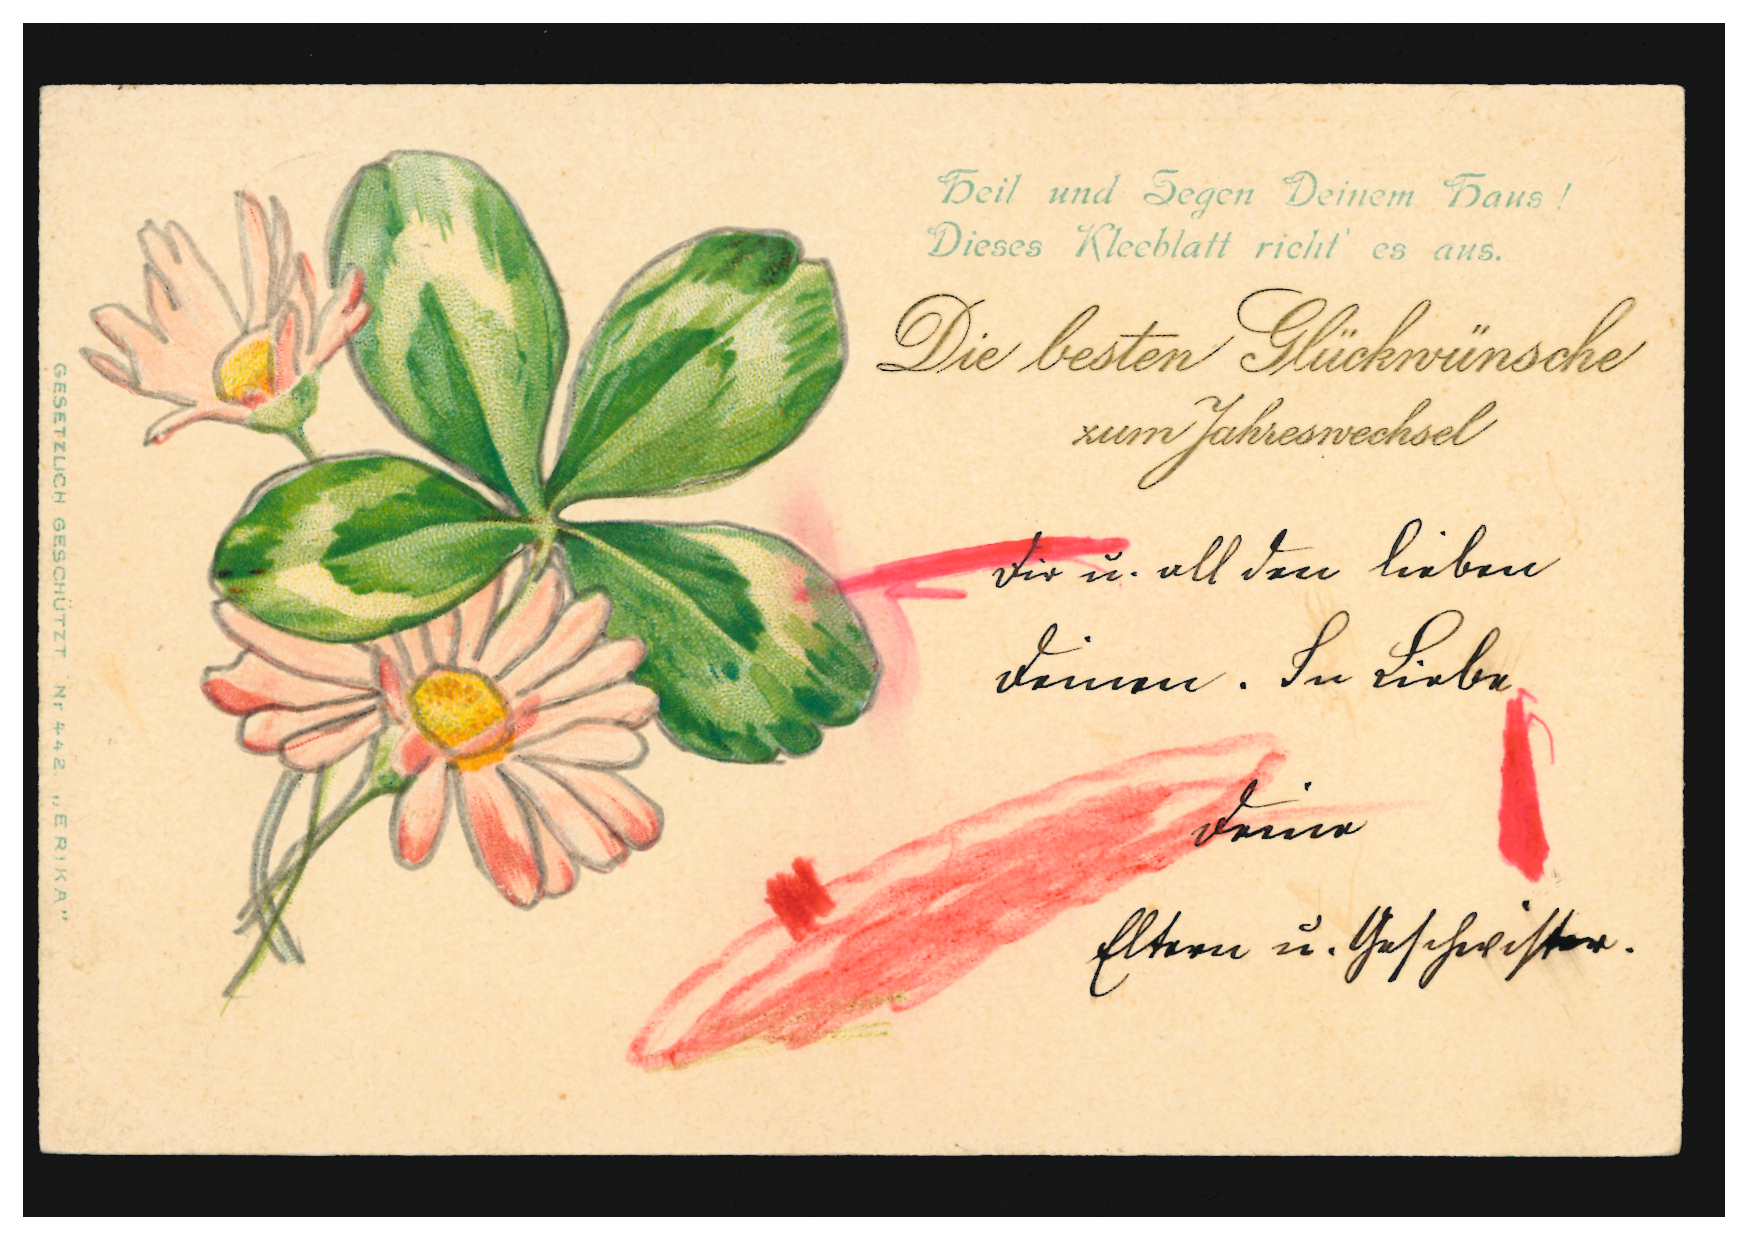 Heil und Segen Deinem Haus!
Dieses Kleeblatt richt' es aus.
Die besten Glückwünsche
zum Jahreswechsel
Dir u. all den lieben
Deinen. In Liebe
Deine
Eltern u. Geschwister.
GESETZLICH GESCHÜTZT Nr 442. „ERIKA"